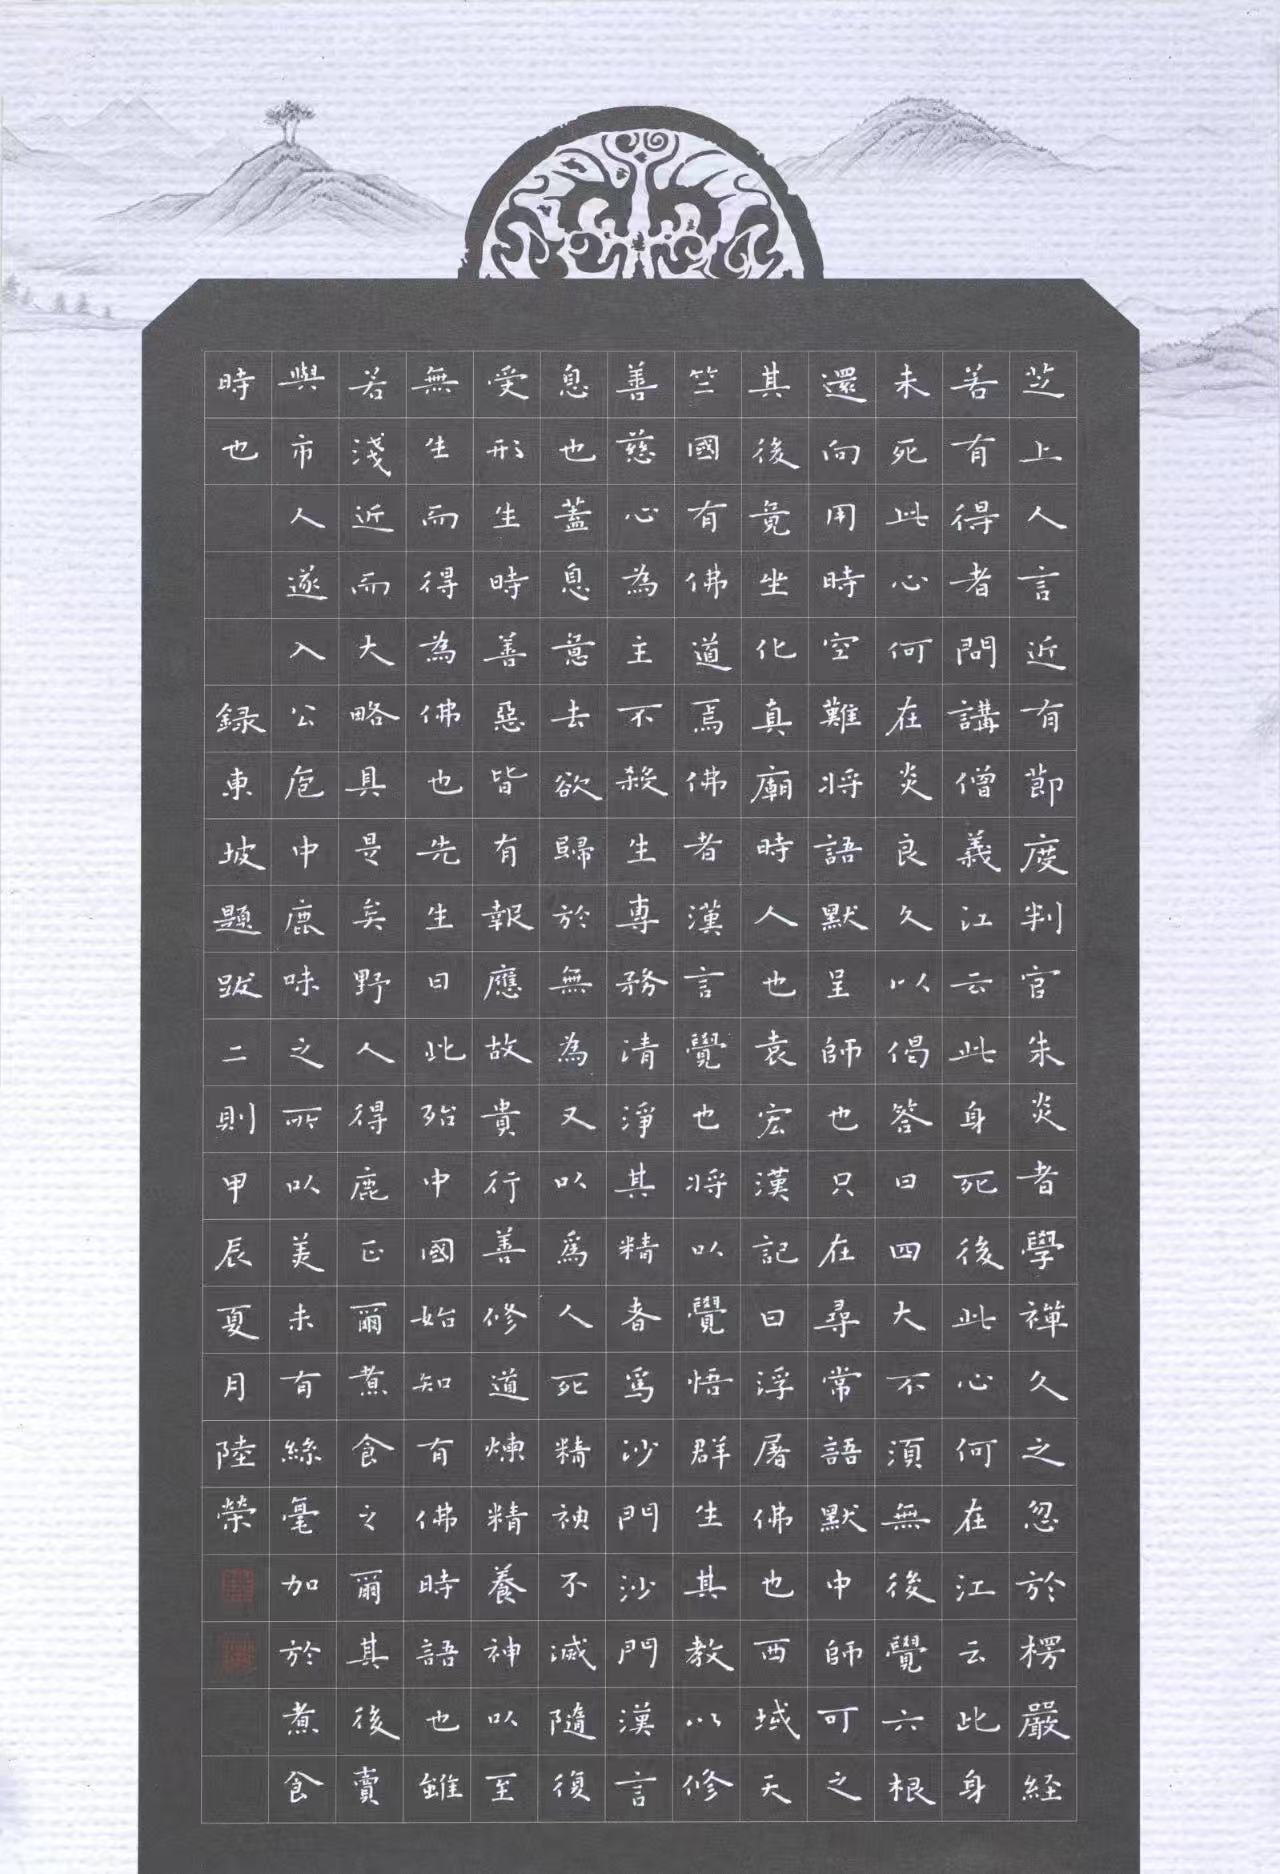 芝上人言近有節度判官朱炎者學禪久之忽於楞嚴經
若有得者問講僧義江云此身死後此心何在江云此身
未死此心何在炎良久以偈答曰四大不須無後覺六根
還向用時空難將語默呈師也只在尋常語默中師可之
其後竟坐化真廟時人也袁宏漢記曰浮屠佛也西域天
竺國有佛道焉佛者漢言覺也將以覺悟群生其教以修
善慈心為主不殺生專務清淨其精者爲沙門沙門漢言
息也蓋息意去欲歸於無為又以爲人死精神不滅隨復
受形生時善惡皆有報應故貴行善修道煉精養神以至
無生而得為佛也先生曰此殆中國始知有佛時語也雖
若淺近而大略具是矣野人得鹿正爾煮食之爾其後賣
與市人遂入公庖中鹿味之所以美未有絲毫加於煮食
時也 録東坡題跋二則甲辰夏月陸榮